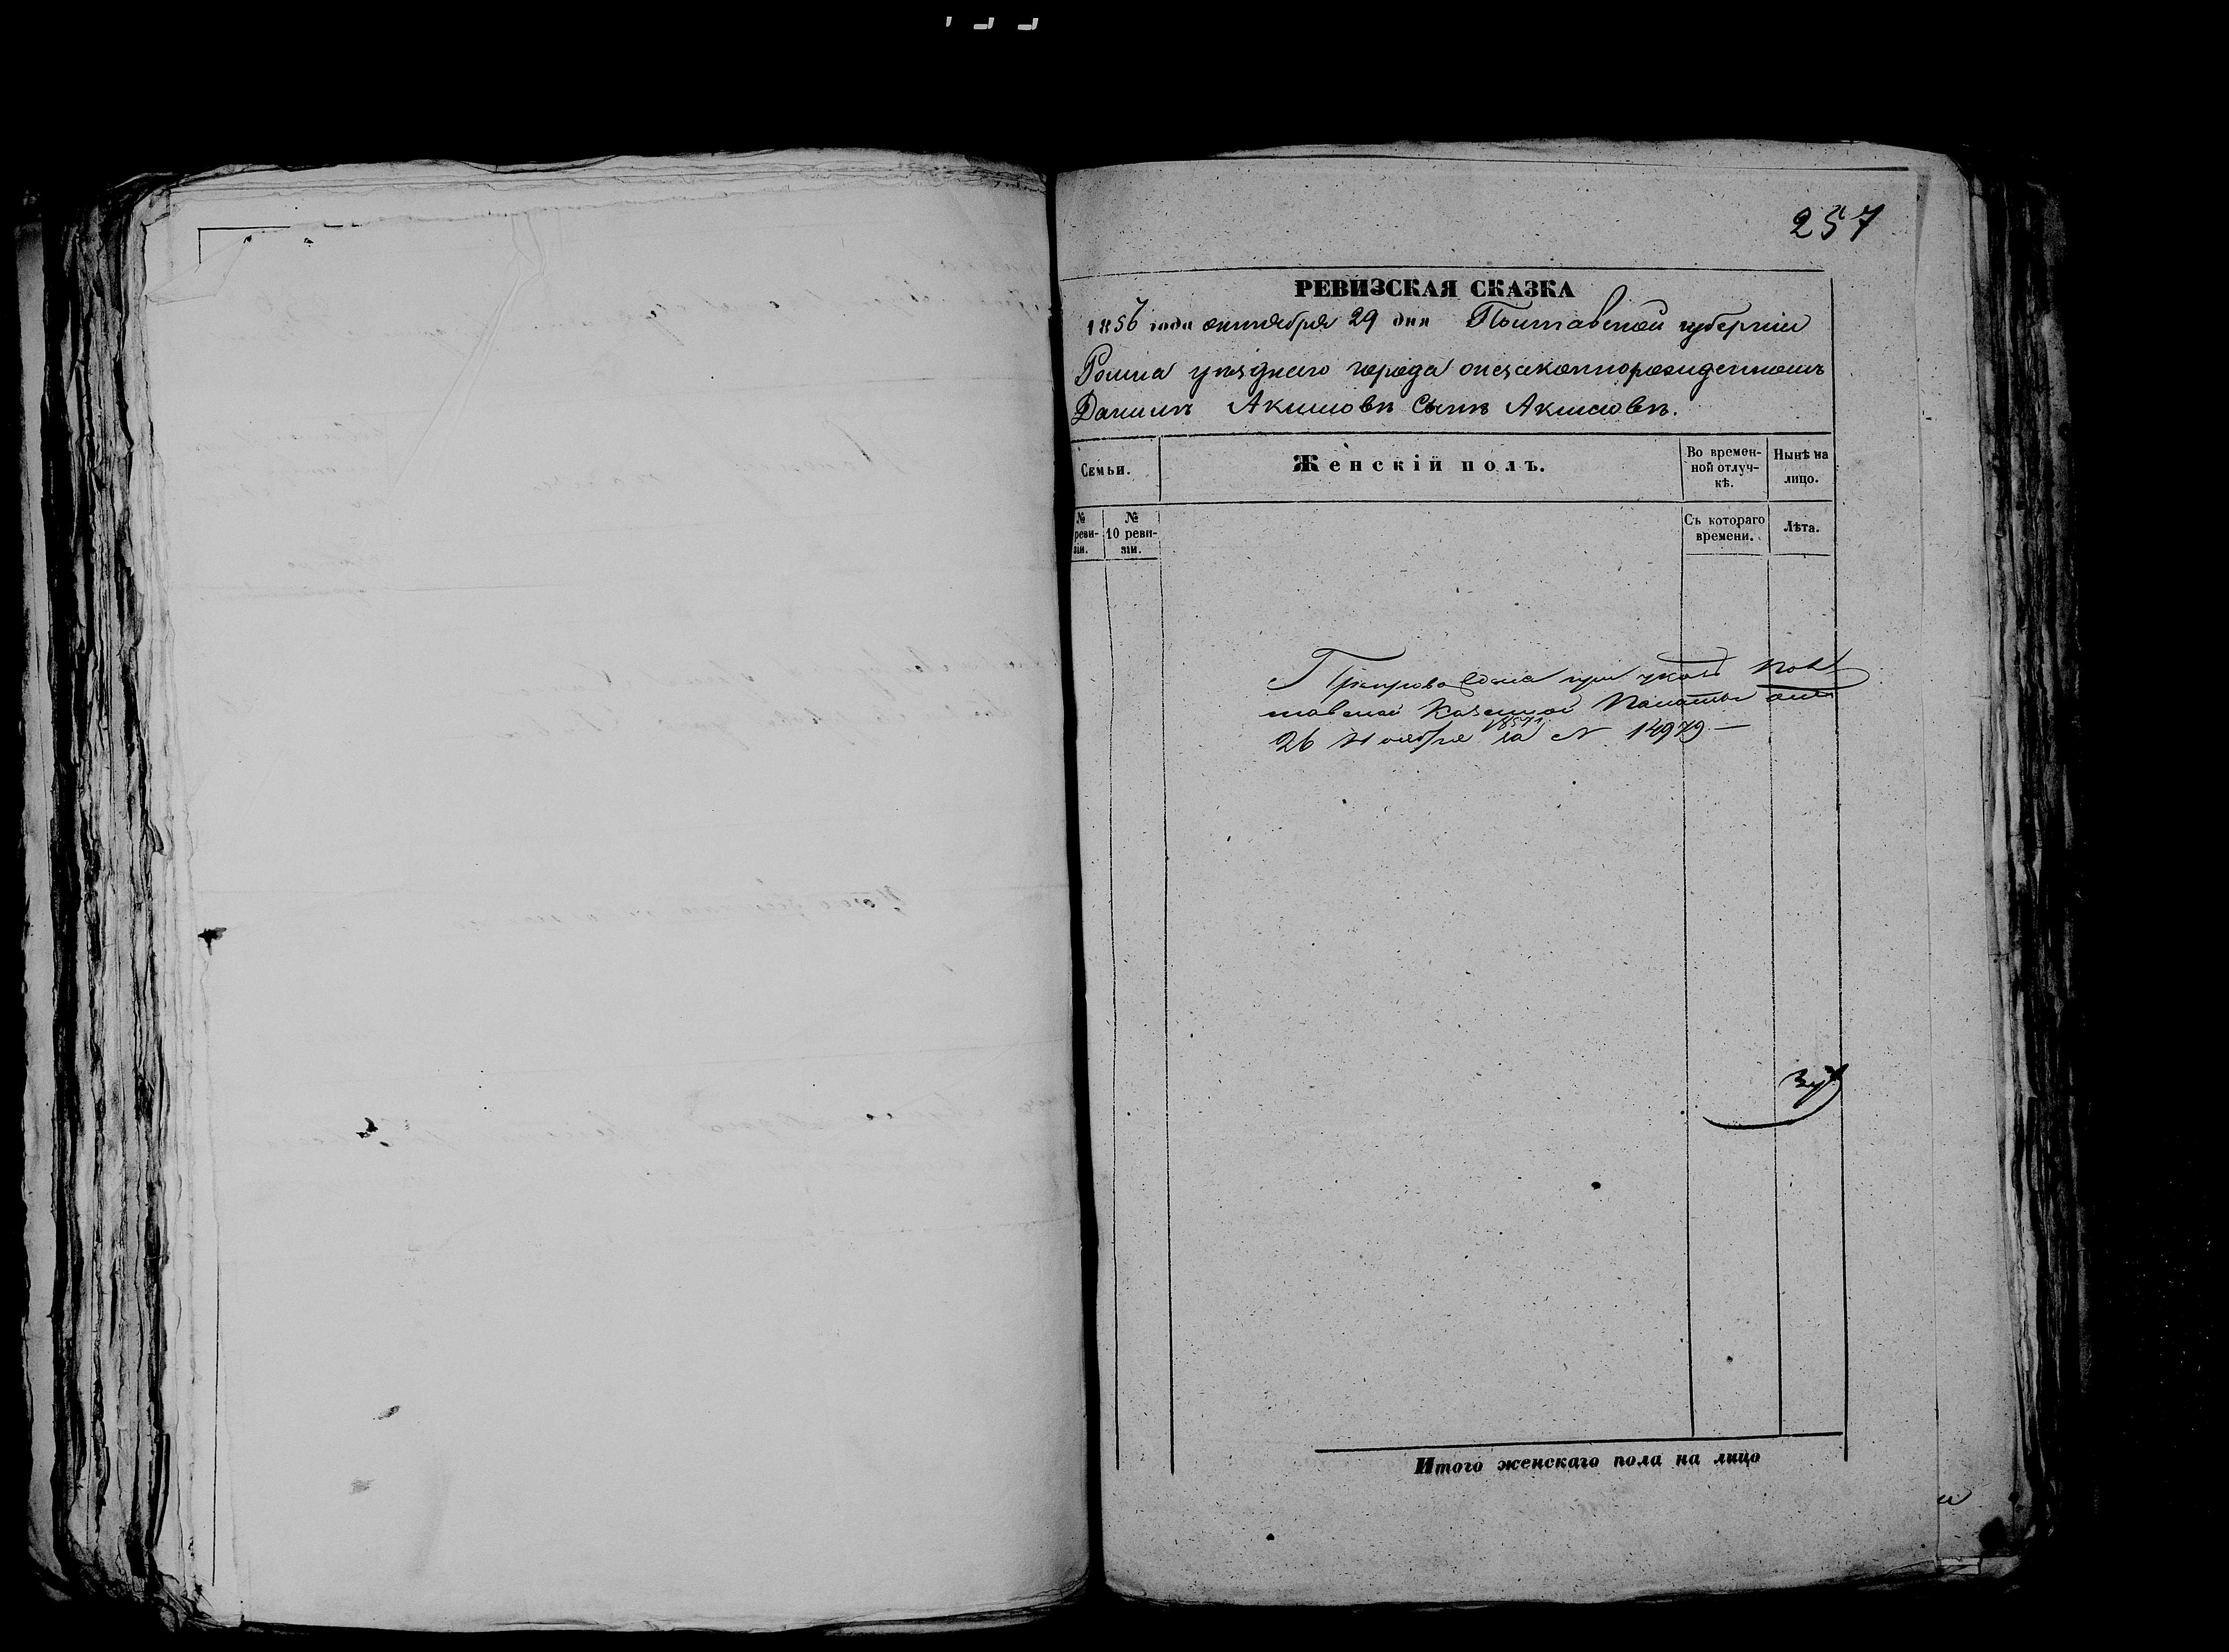 257
РЕВИЗСКАЯ СКАЗКА
1856 года октября 29 дня Полтавской губерніи
Ромна уѣзднаго города онезаконнорожденномъ
Данилѣ Акимовѣ Сынѣ Акимовѣ.
Семьи.
Женскій полъ.
Во времен-
ной отлуч-
кѣ.
Нынѣ на
лицо.
№
реви-
зіи.
№
10 реви-
зіи.
Съ котораго
времени.
Лѣта.
при указѣ Пол
тавской Казенной Палаты отъ
26 Ноября 1857 за № 14979 —
Итого женскаго пола на лицо